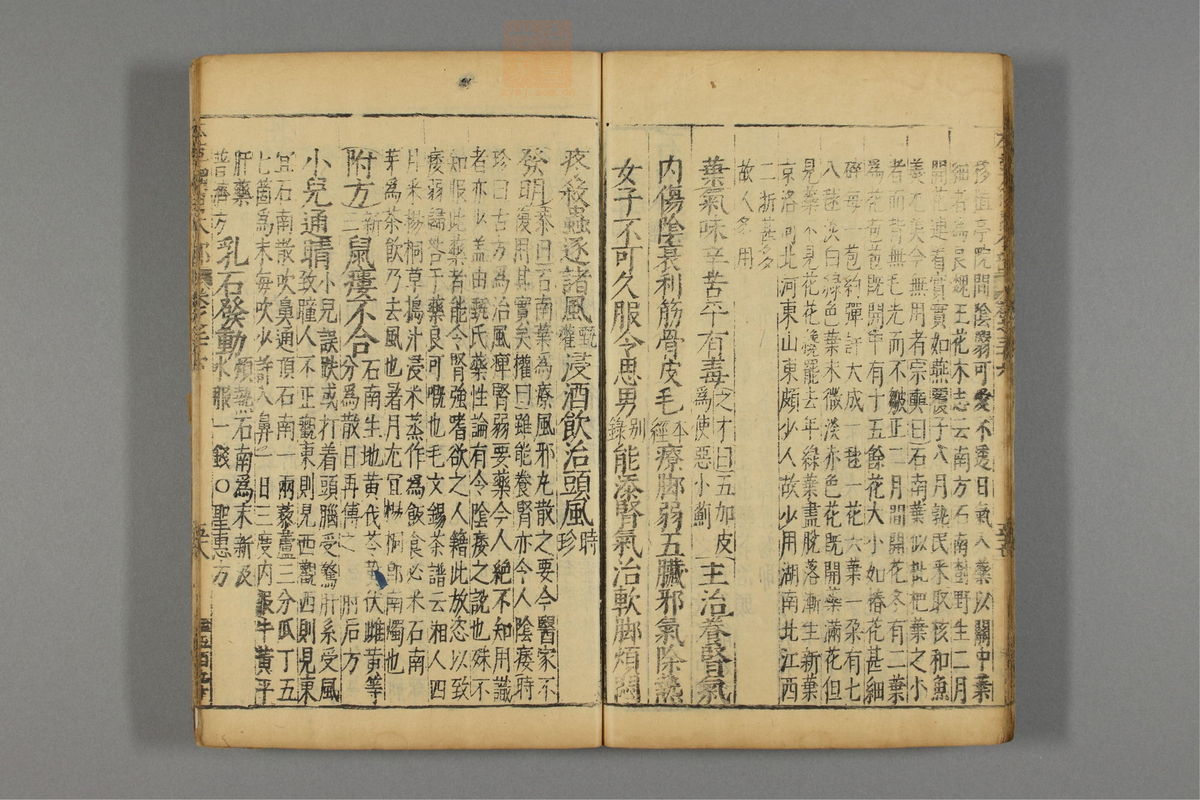 移植亭院間陰翳可愛不透日氣入藥以關中葉
細者爲良魏王花木志云南方石南樹野生二月
開花連着實實如燕覆子八月熟民采取核和魚
羮尤美今無用者宗奭曰石南葉似枇杷葉之小
者而背無毛光而不皺正二月間開花冬有二葉
爲花苞苞既開中有十五餘花大小如椿花甚細
碎每一苞約彈許大成一毬一花六葉一朶有七
八毬淡白綠色葉末微淡赤色花既開蘂滿花但
見蘂不見花花纔罷去年綠葉盡脫落漸生新葉
京洛河北河東山東頗少人故少用湖南北江西
二浙甚多
故人多用
葉氣味辛苦平有毒
之才曰五加皮
爲使惡小薊
主治養腎氣
内傷陰衰利筋骨皮毛
本
經
療脚弱五臟邪氣除熱
女子不可久服令思男
别
錄
能添腎氣治軟脚煩悶
疼殺蟲逐諸風
甄
權
浸酒飲治頭風
時
珍
發明
恭曰石南葉爲療風邪丸散之要今醫家不
復用其實矣權曰雖能養腎亦令人陰痿時
珍曰古方爲治風痺腎弱要藥今人絶不知用識
者亦少蓋由甄氏藥性論有令陰痿之說也殊不
知服此藥者能令腎強嗜欲之人籍此放恣以致
痿弱歸咎于藥良可嘅也毛文錫茶譜云湘人四
月采楊桐草搗汁浸米蒸作爲飯食必采石南
芽爲茶飲乃去風也暑月尤宜楊桐卽南燭也
附方
新
三
鼠瘻不合
石南生地黄茯苓黄
伏雌黄等
分爲散日再傅之
肘后方
小兒通睛
小兒誤跌或打着頭腦受驚肝系受風
致瞳人不正觀東則見西觀西則見東
宜石南散吹鼻通頂石南一兩藜蘆三分瓜丁五
七箇爲末每吹少許入鼻一日三度内服牛黄平
肝藥
普濟方
乳石發動
煩熱石南爲末新汲
水服一錢〇聖惠方